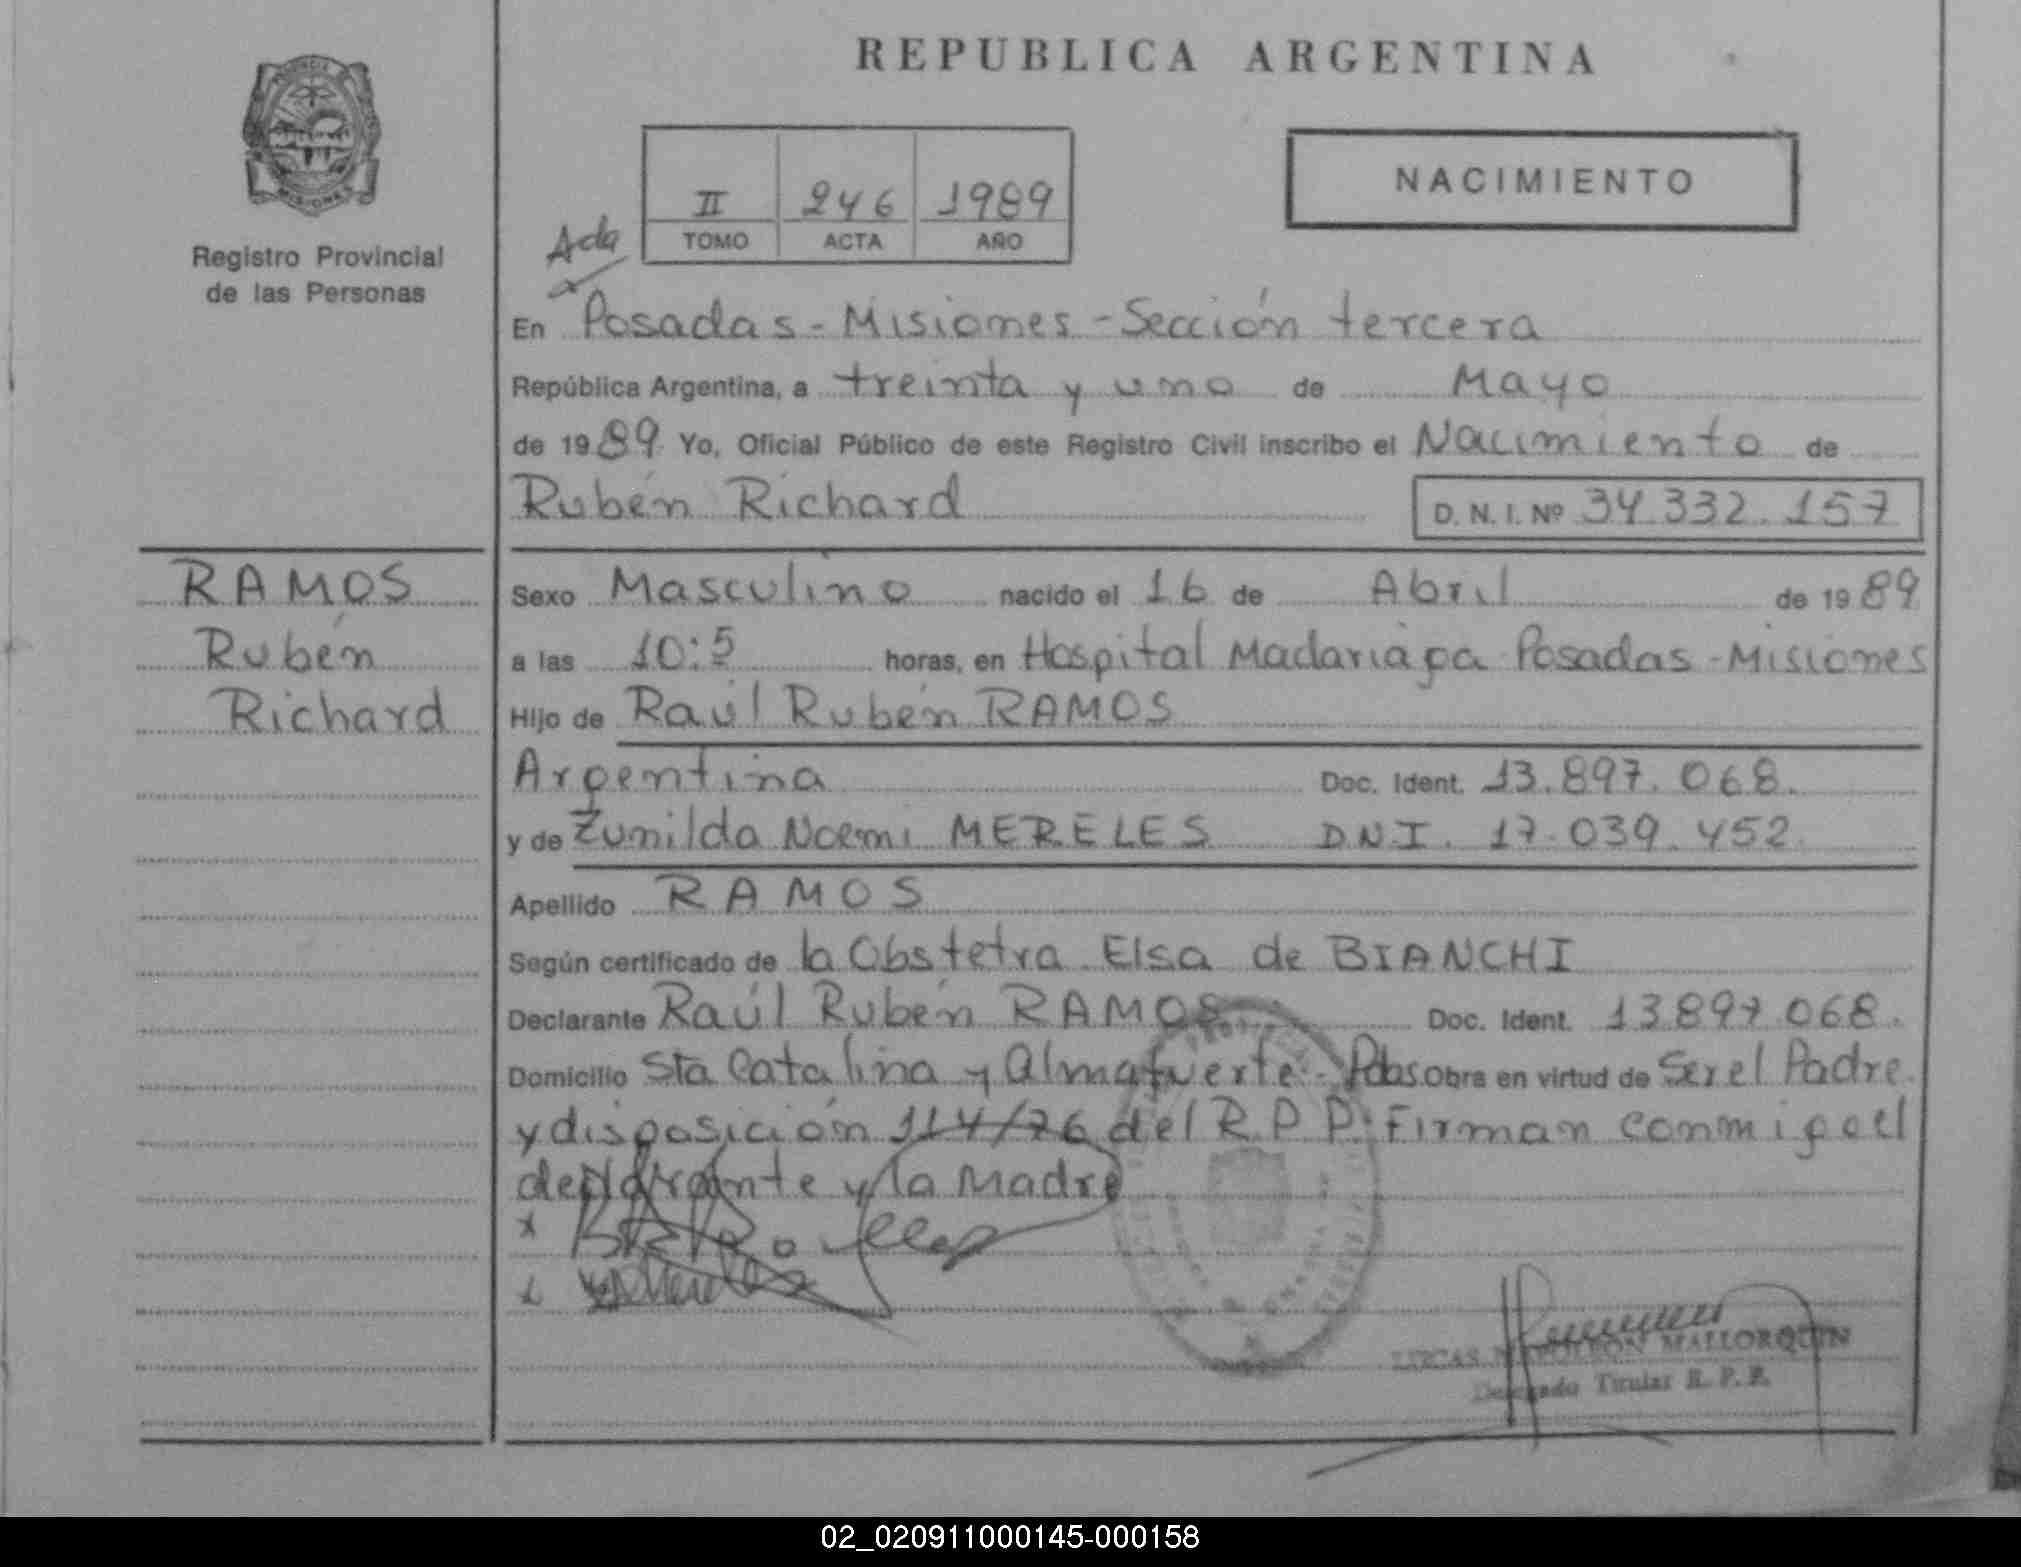 REPUBLICA ARGENTINA
PROVINCIA
MISIONES
Registro Provincial
de las Personas
II 246 1989
TOMO ACTA AÑO
NACIMIENTO
En Posadas - Misiones - Sección tercera
República Argentina, a treinta y uno de Mayo
de 1989 Yo, Oficial Público de este Registro Civil inscribo el Nacimiento de
Rubén Richard D. N. I. Nº 34.332.157
RAMOS
Rubén
Richard
Sexo Masculino nacido el 16 de Abril de 1989
a las 10:5 horas, en Hospital Madariaga Posadas - Misiones
Hijo de Raúl Rubén RAMOS
Argentina Doc. Ident. 13.897.068.
y de Zunilda Noemi MERELES D.N.I. 17.039.452
Apellido RAMOS
Según certificado de la Obstetra Elsa de BIANCHI
Declarante Raúl Rubén RAMOS Doc. Ident. 13897068.
Domicilio Sta Catalina y Almafuerte - Pdas Obra en virtud de Ser el Padre
y disposición 114/76 del R.P.P. Firman conmigo el
declarante y la Madre
LUCAS NAPOLEON MALLORQUIN
Delegado Titular R. P. P.
02_020911000145-000158